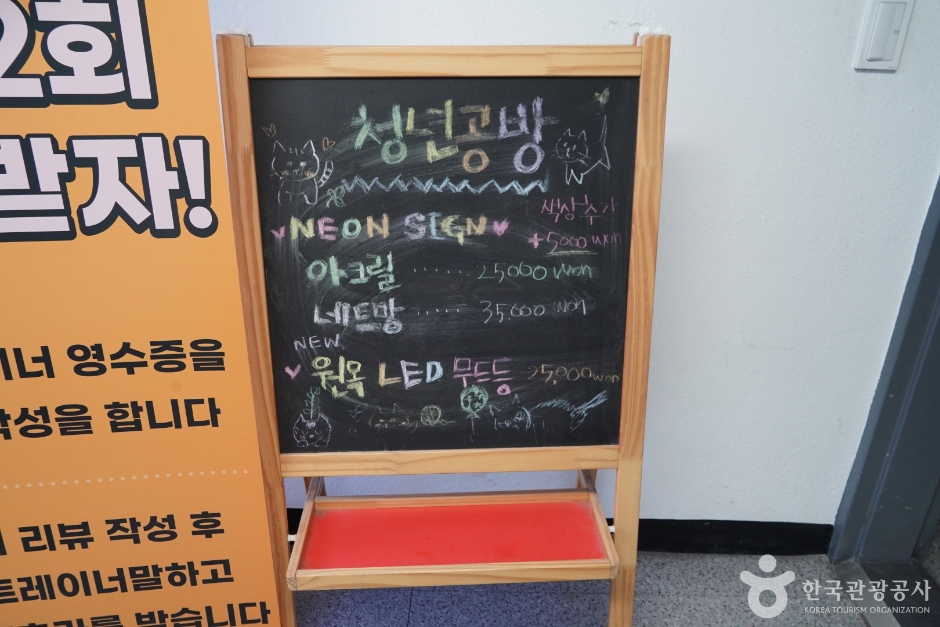 2회
받자!
영수증을
작성을 합니다
리뷰 작성 후
트레이너말하고
받습니다
청년공방
NEON SIGN
색상추가
+5000 won
아크릴 ...... 25,000 won
네트망 ...... 35,000 won
NEW
원목 LED 무드등 25,000 won
한국관광공사
KOREA TOURISM ORGANIZATION